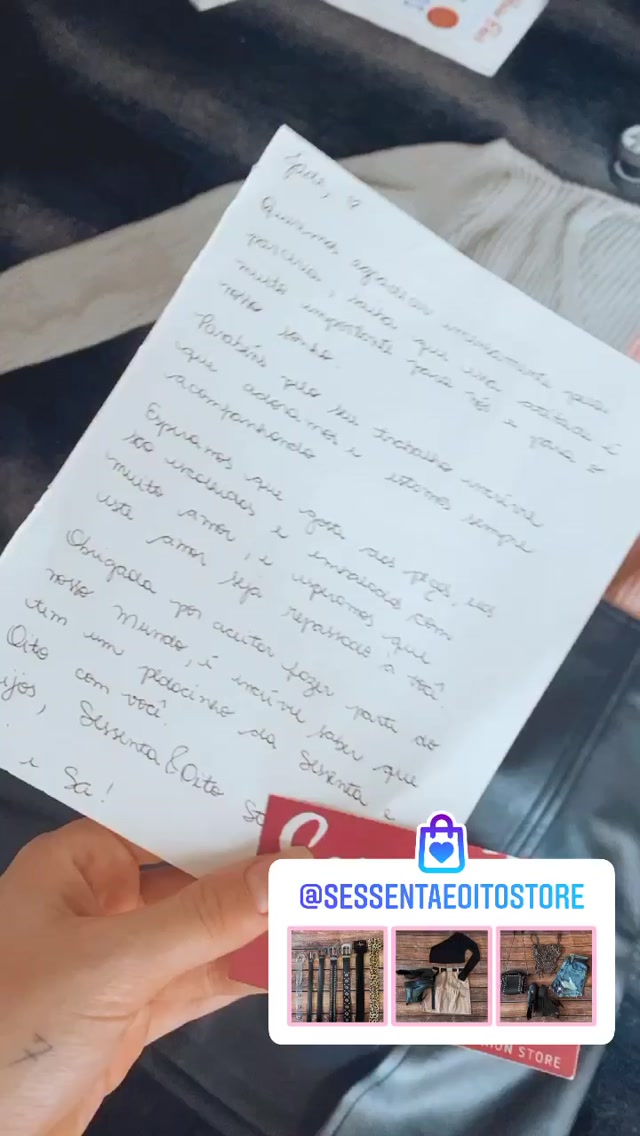 Queremos agradecer imensamente pela
parceria, saiba que essa atitude é
muito importante para nós e para o
nosso sonho.
Parabéns pelo seu trabalho incrível
que adoramos e estamos sempre
acompanhando
Esperamos que goste das peças, elas
são escolhidas e embaladas com
muito amor, e esperamos que
este amor seja repassado à você.
Obrigada por aceitar fazer parte do
nosso mundo, é incrível saber que
tem um pedacinho da Sessenta e
Oito com você.
ijos, Sessenta&Oito St
e Sa!
@SESSENTAEOITOSTORE
ION STORE